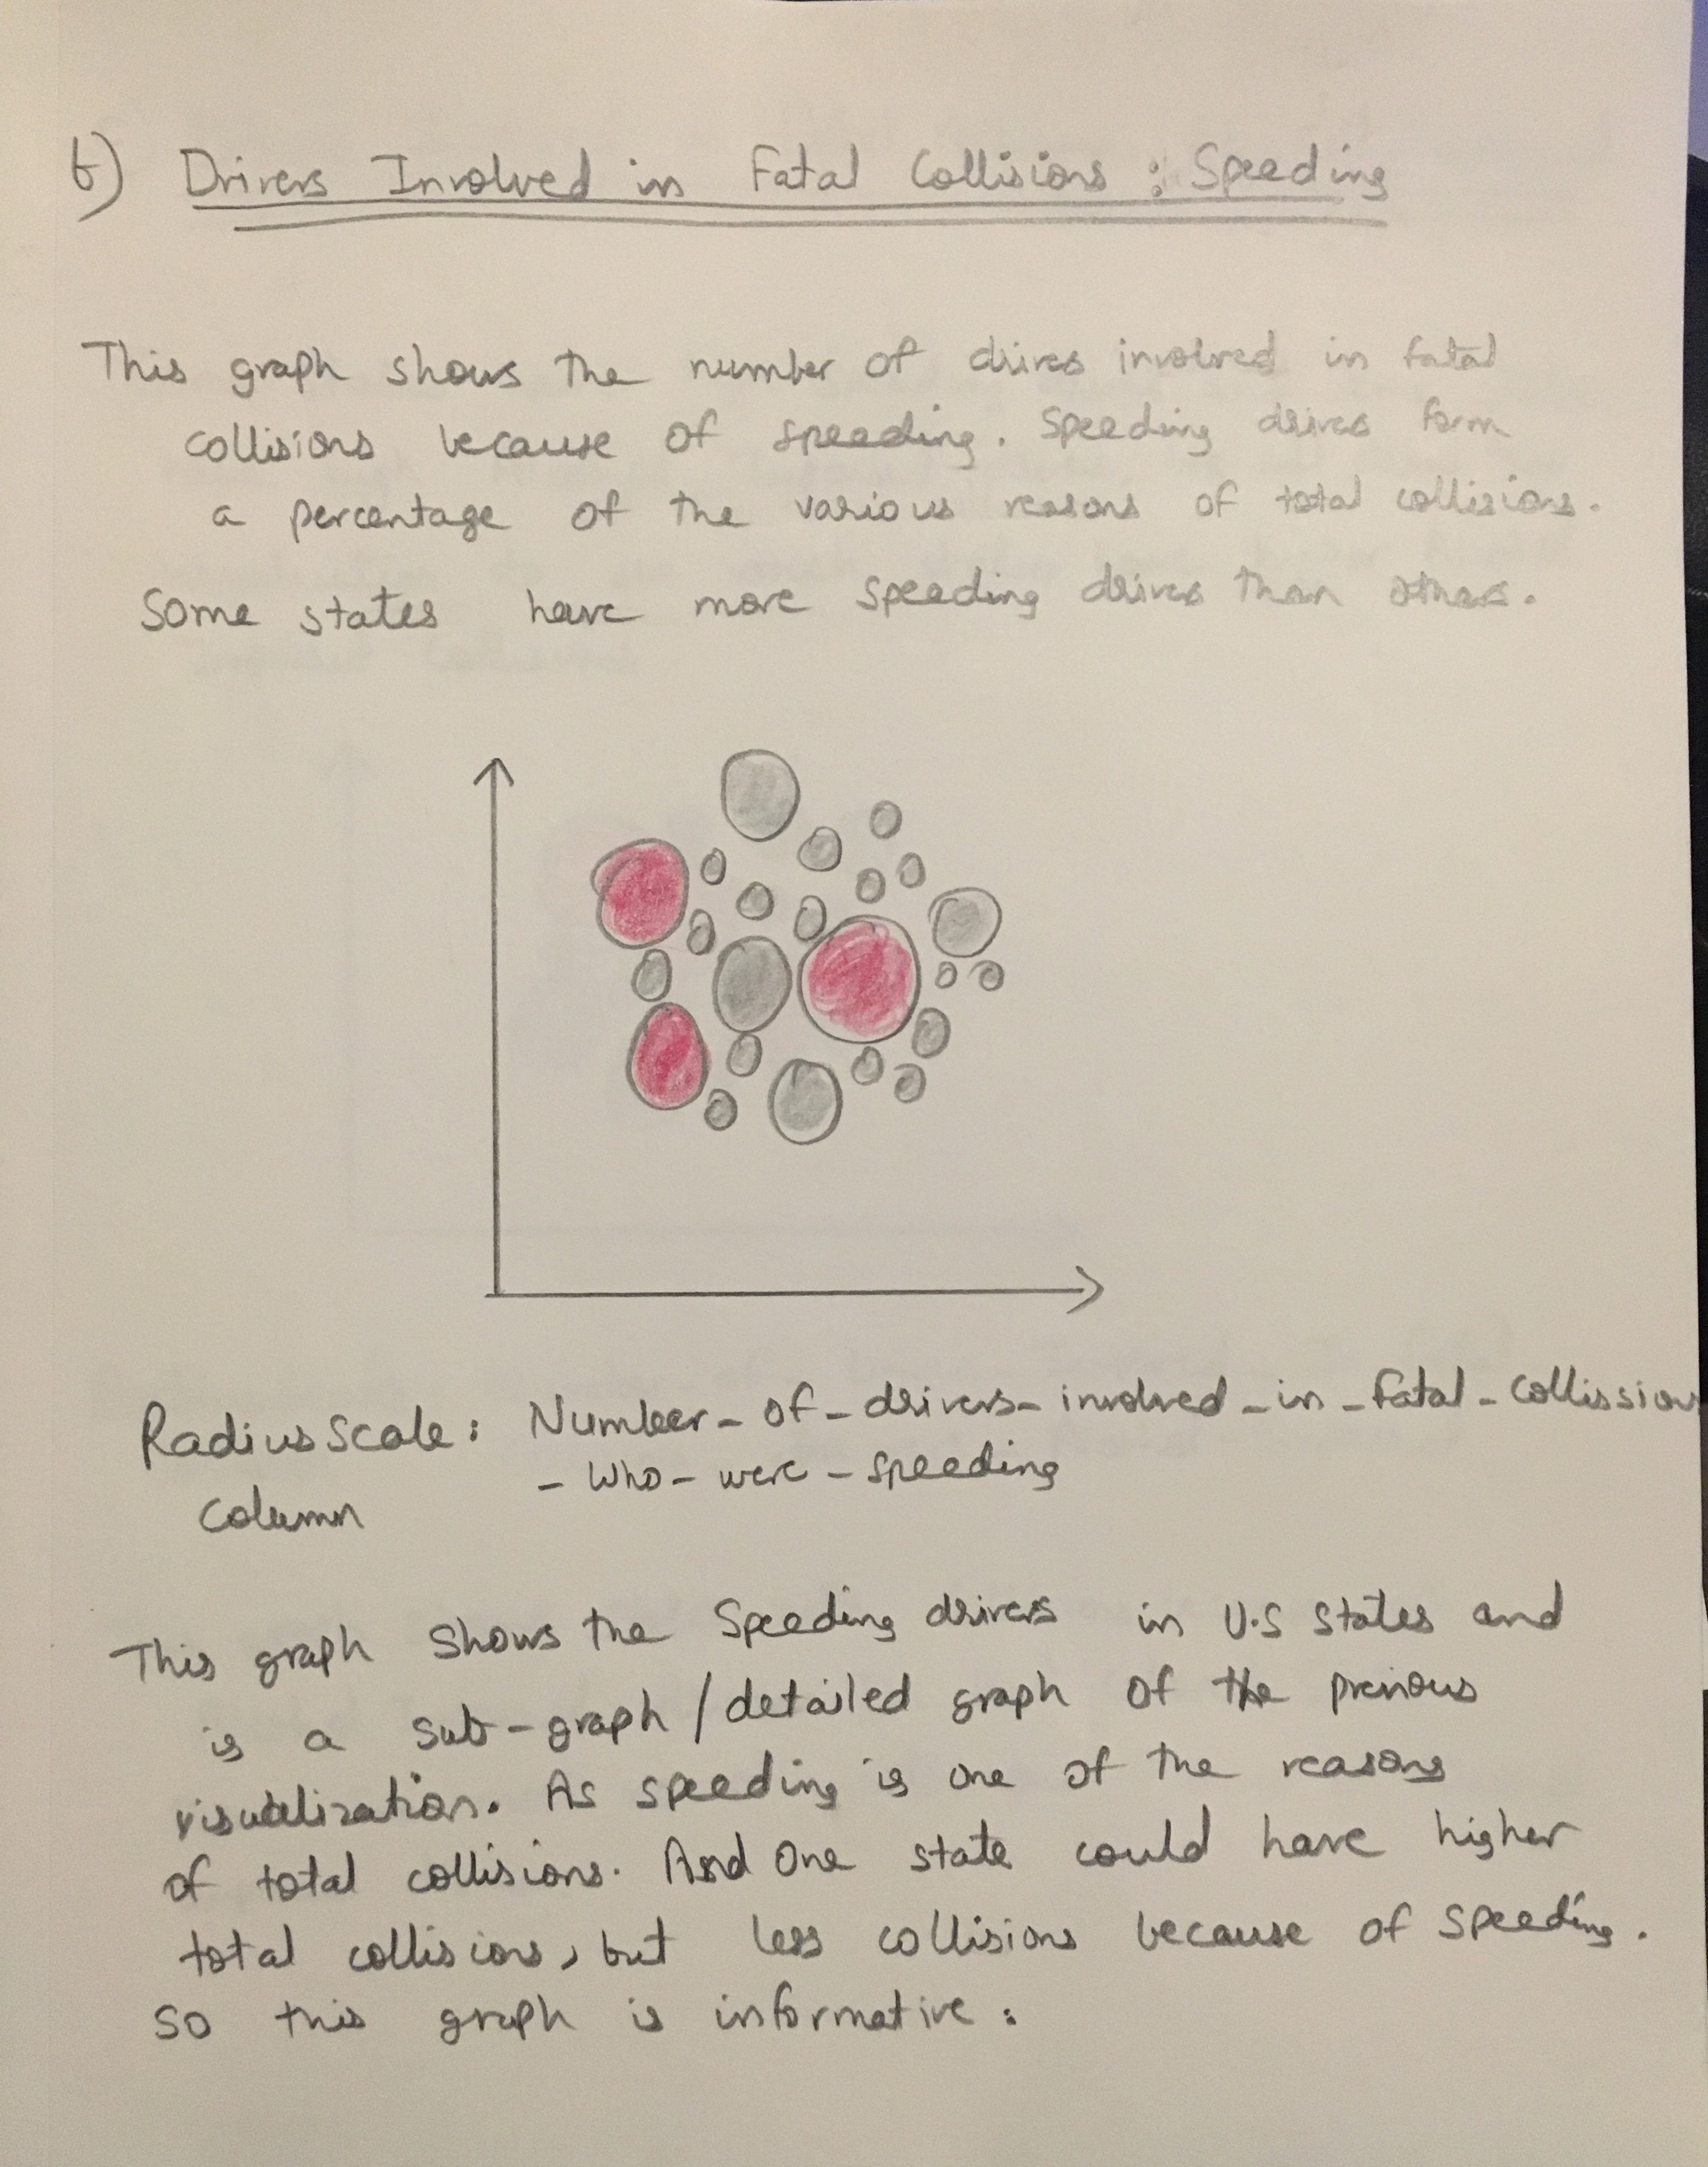 b) Drivers Involved in Fatal Collisions : Speeding
This graph shows the number of drives involved in fatal
collisions because of speeding. Speeding drives form
a percentage of the various reasons of total collisions.
Some states have more speeding drives than others.
Radius Scale : Number_of_drivers_involved_in_fatal_collission
_who_were_speeding
Column
This graph shows the Speeding drivers in U.S states and
is a sub-graph / detailed graph of the previous
visualization. As speeding is one of the reasons
of total collisions. And One state could have higher
total collisions, but less collisions because of speeding.
So this graph is informative :